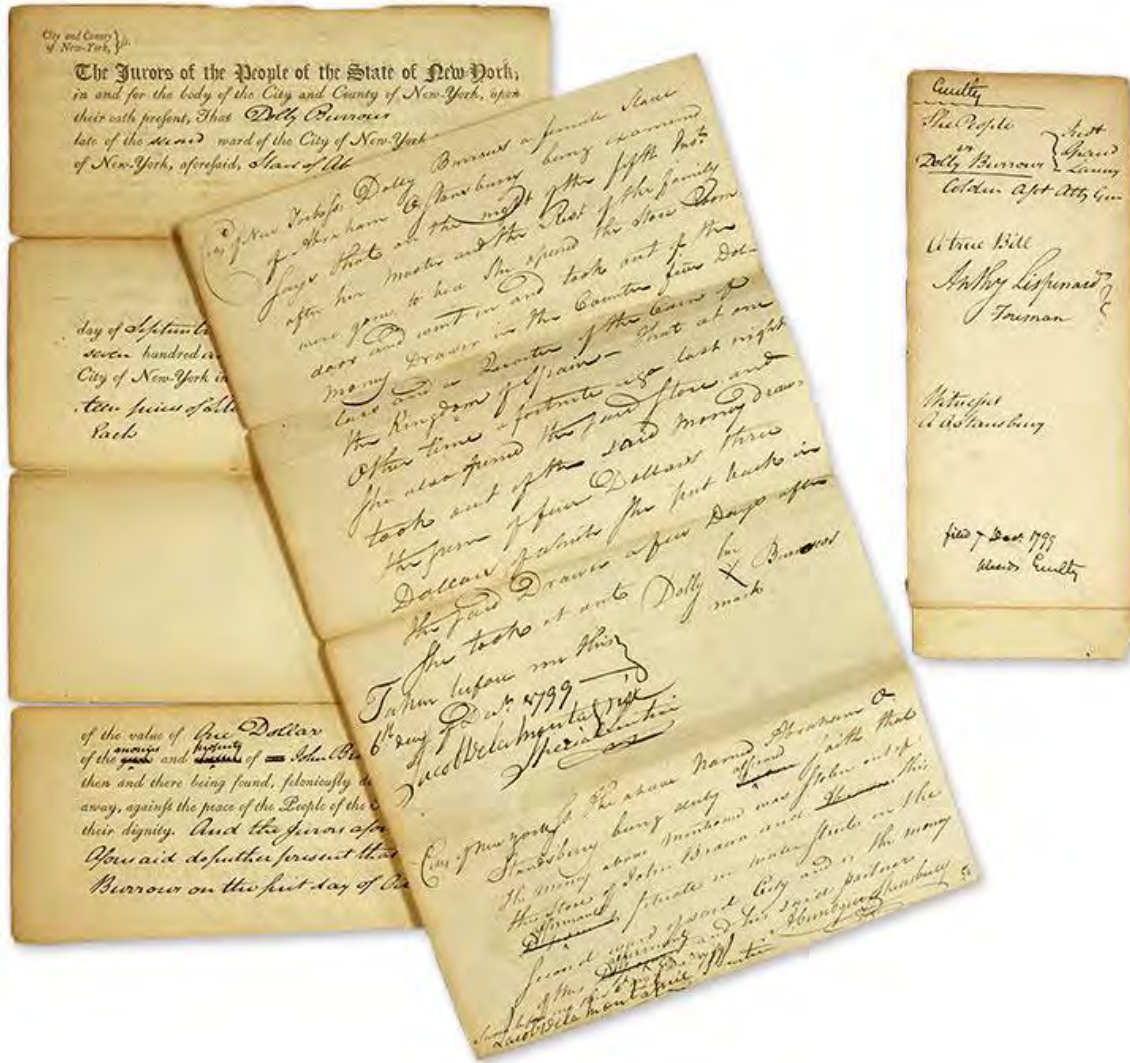 City and County
of New-York,
The Jurors of the People of the State of New-York,
in and for the body of the City and County of New-York, upon
their oath present, That Dolly Burrows
late of the second ward of the City of New-York
of New-York, aforesaid, Slave of Ab
day of Septemb
seven hundred
City of New-York in
teen pieces of
Each
of the value of One Dollar
of the monies and property of John Br
then and there being found, feloniously
away, against the peace of the People of the
their dignity. And the Jurors afor
Aforesaid do further present that
Burrows on the first day of
City of New York ss. Dolly Burrows a female Slave
of Abraham O Stansbury being examined
Says that on the night of the fifth Inst.
after her Master and the Rest of the family
were gone to bed She opened the Store Room
door and went in and took out of the
money Drawer in the Counter five Dol-
lars and a Quarter of the Coin of
the Kingdom of Spain – That at one
Other time a fortnight ago last night
She also opened the said Store and
took out of the said money draw-
the sum of four Dollars three
Dollars of which She put back in
the said Drawer a few Days after
She took it out Dolly X Burrows
her
mark
Taken before me this
6th day of Decr. 1799
Jacob DeLaMontagnie
Special Justice
City of New York ss. The above Named Abraham O
Stansberry being duly affirmed saith that
the money above mentioned was Stolen out of
the Store of John Brown and this
Affirmant Situate in water Street in the
Second ward of said City and is the money
of this Affirmant and his said partner
Abraham Stansbury
Jacob DeLaMontagnie Justice
Guilty
The People
vs
Dolly Burrows
Grand
Larceny
Colden Ast Atty Gen
A true Bill
Anthy Lispenard
Foreman
Witness
A O Stansbury
filed 7 Decr. 1799
Guilty